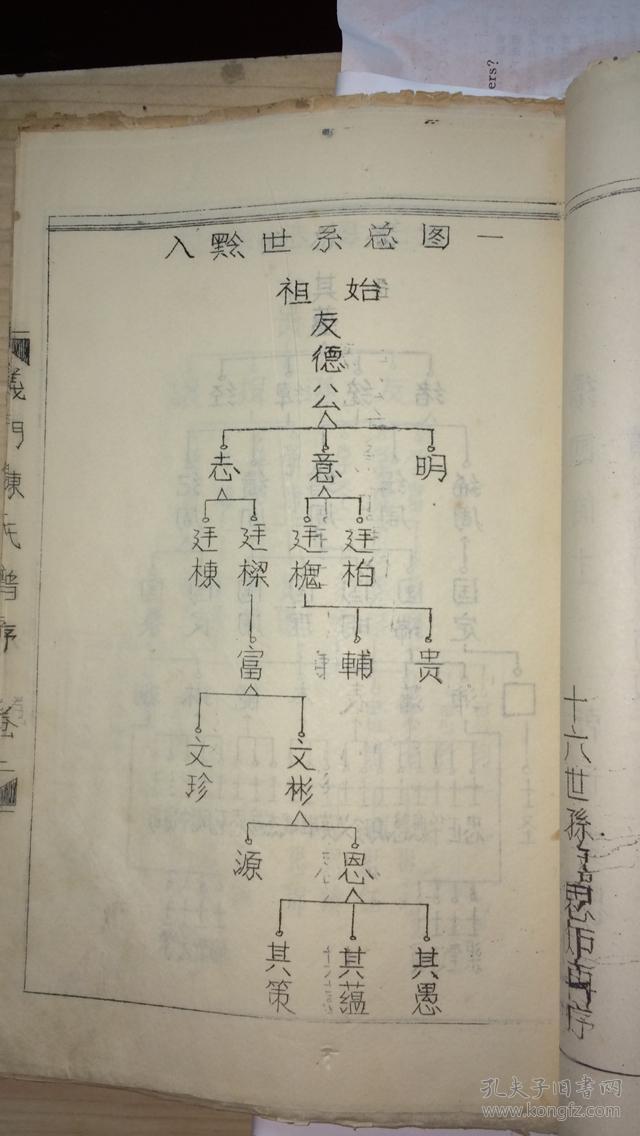 ers?
入黔世系总图一
始祖
友德公
明
意
志
廷柏
廷槐
廷樑
廷棟
贵
輔
富
文彬
文珍
恩
源
其愚
其蕴
其策
義門陳氏譜序 卷二
十六世孫
序
孔夫子旧书网
www.kongfz.com